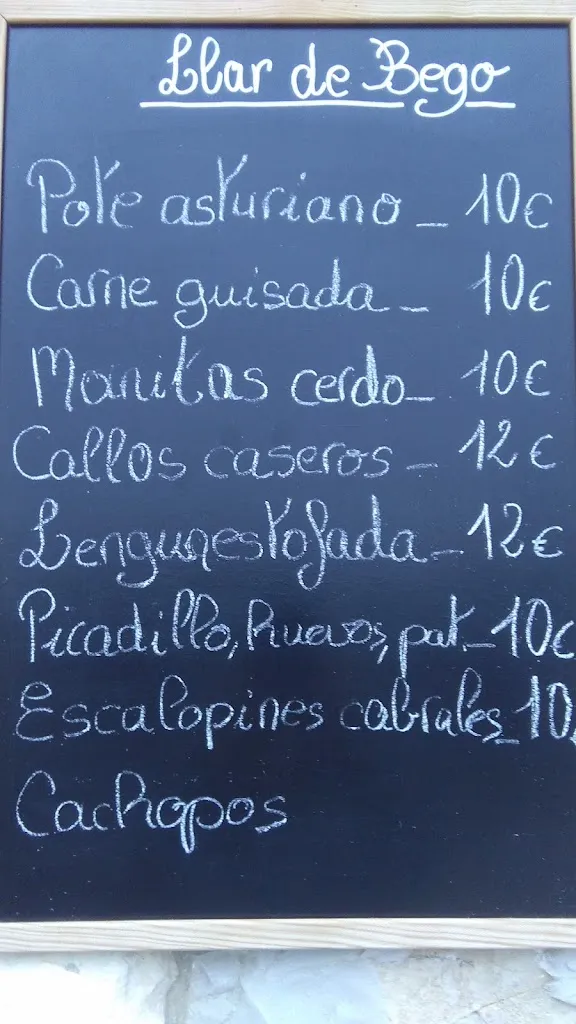 Llar de Bego
Pote asturiano _ 10€
Carne guisada _ 10€
Manitas cerdo _ 10€
Callos caseros _ 12€
Lengua estofada _ 12€
Picadillo, huevos, pat. _ 10€
Escalopines cabrales _ 10
Cachopos